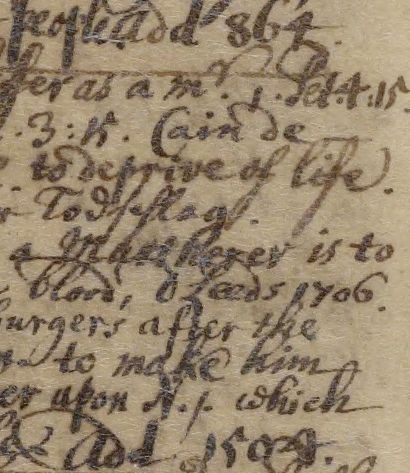 people add 864
fer as a mr. 1. Pet. 4:15
. 3:15. Cain de
to deprive of life.
Todtschlag.
a Murtherer is to
blood, Leeds 1706.
burgers after the
to make him
er upon N. 1. which
Add 1504.